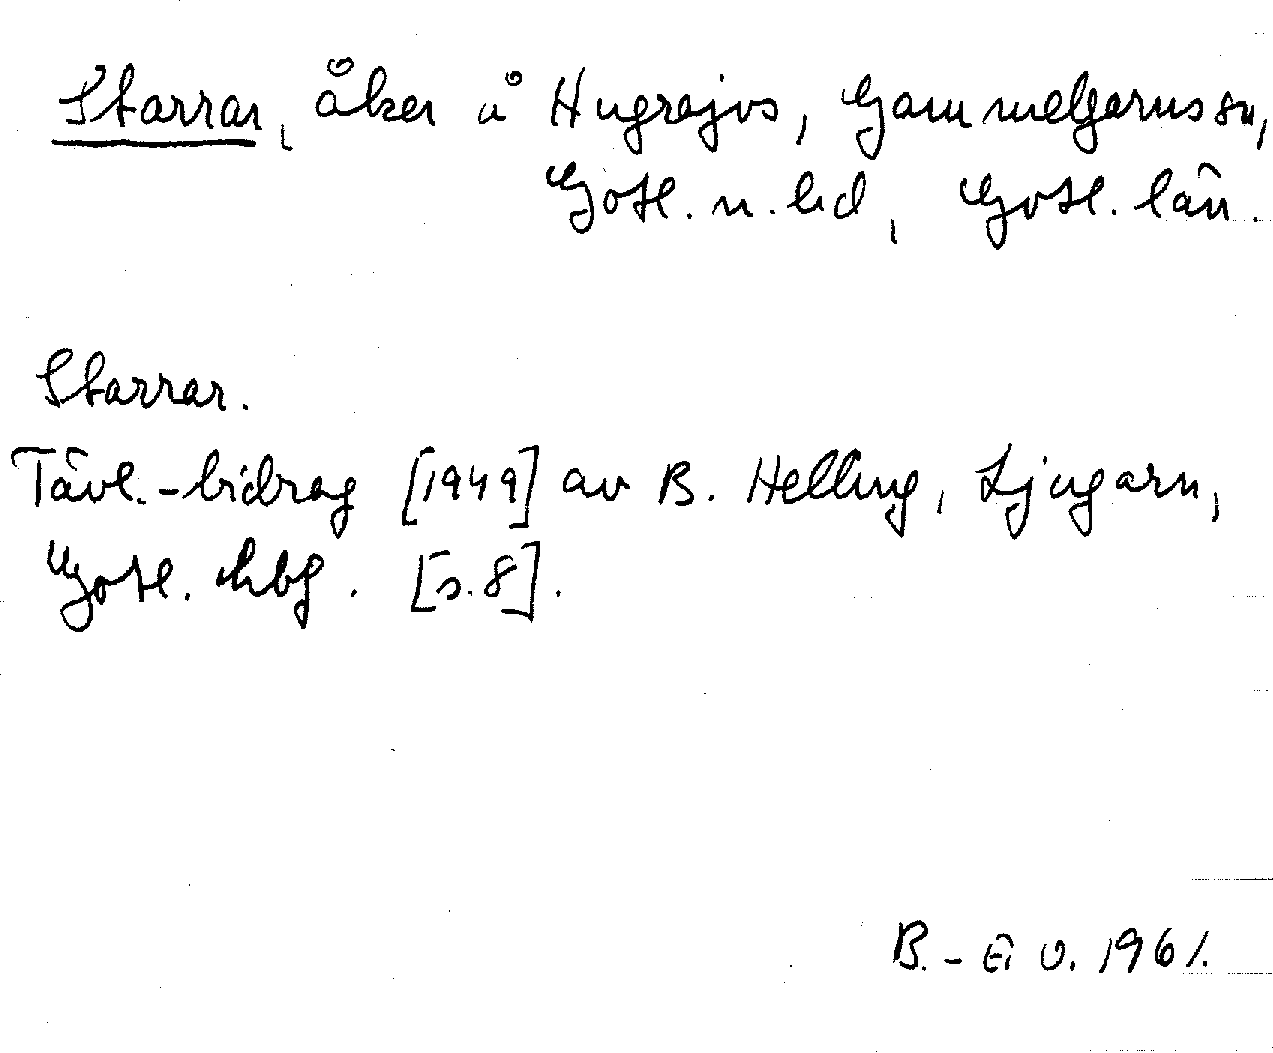 Starrar, åker å Hugrajvs, Gammelgarns sn,
Gotl. n. hd, Gotl. län.
Starrar.
Tävl.-bidrag [1949] av B. Helling, Ljugarn,
Gotl. hbg. [s. 8].
B.-E. O. 1961.